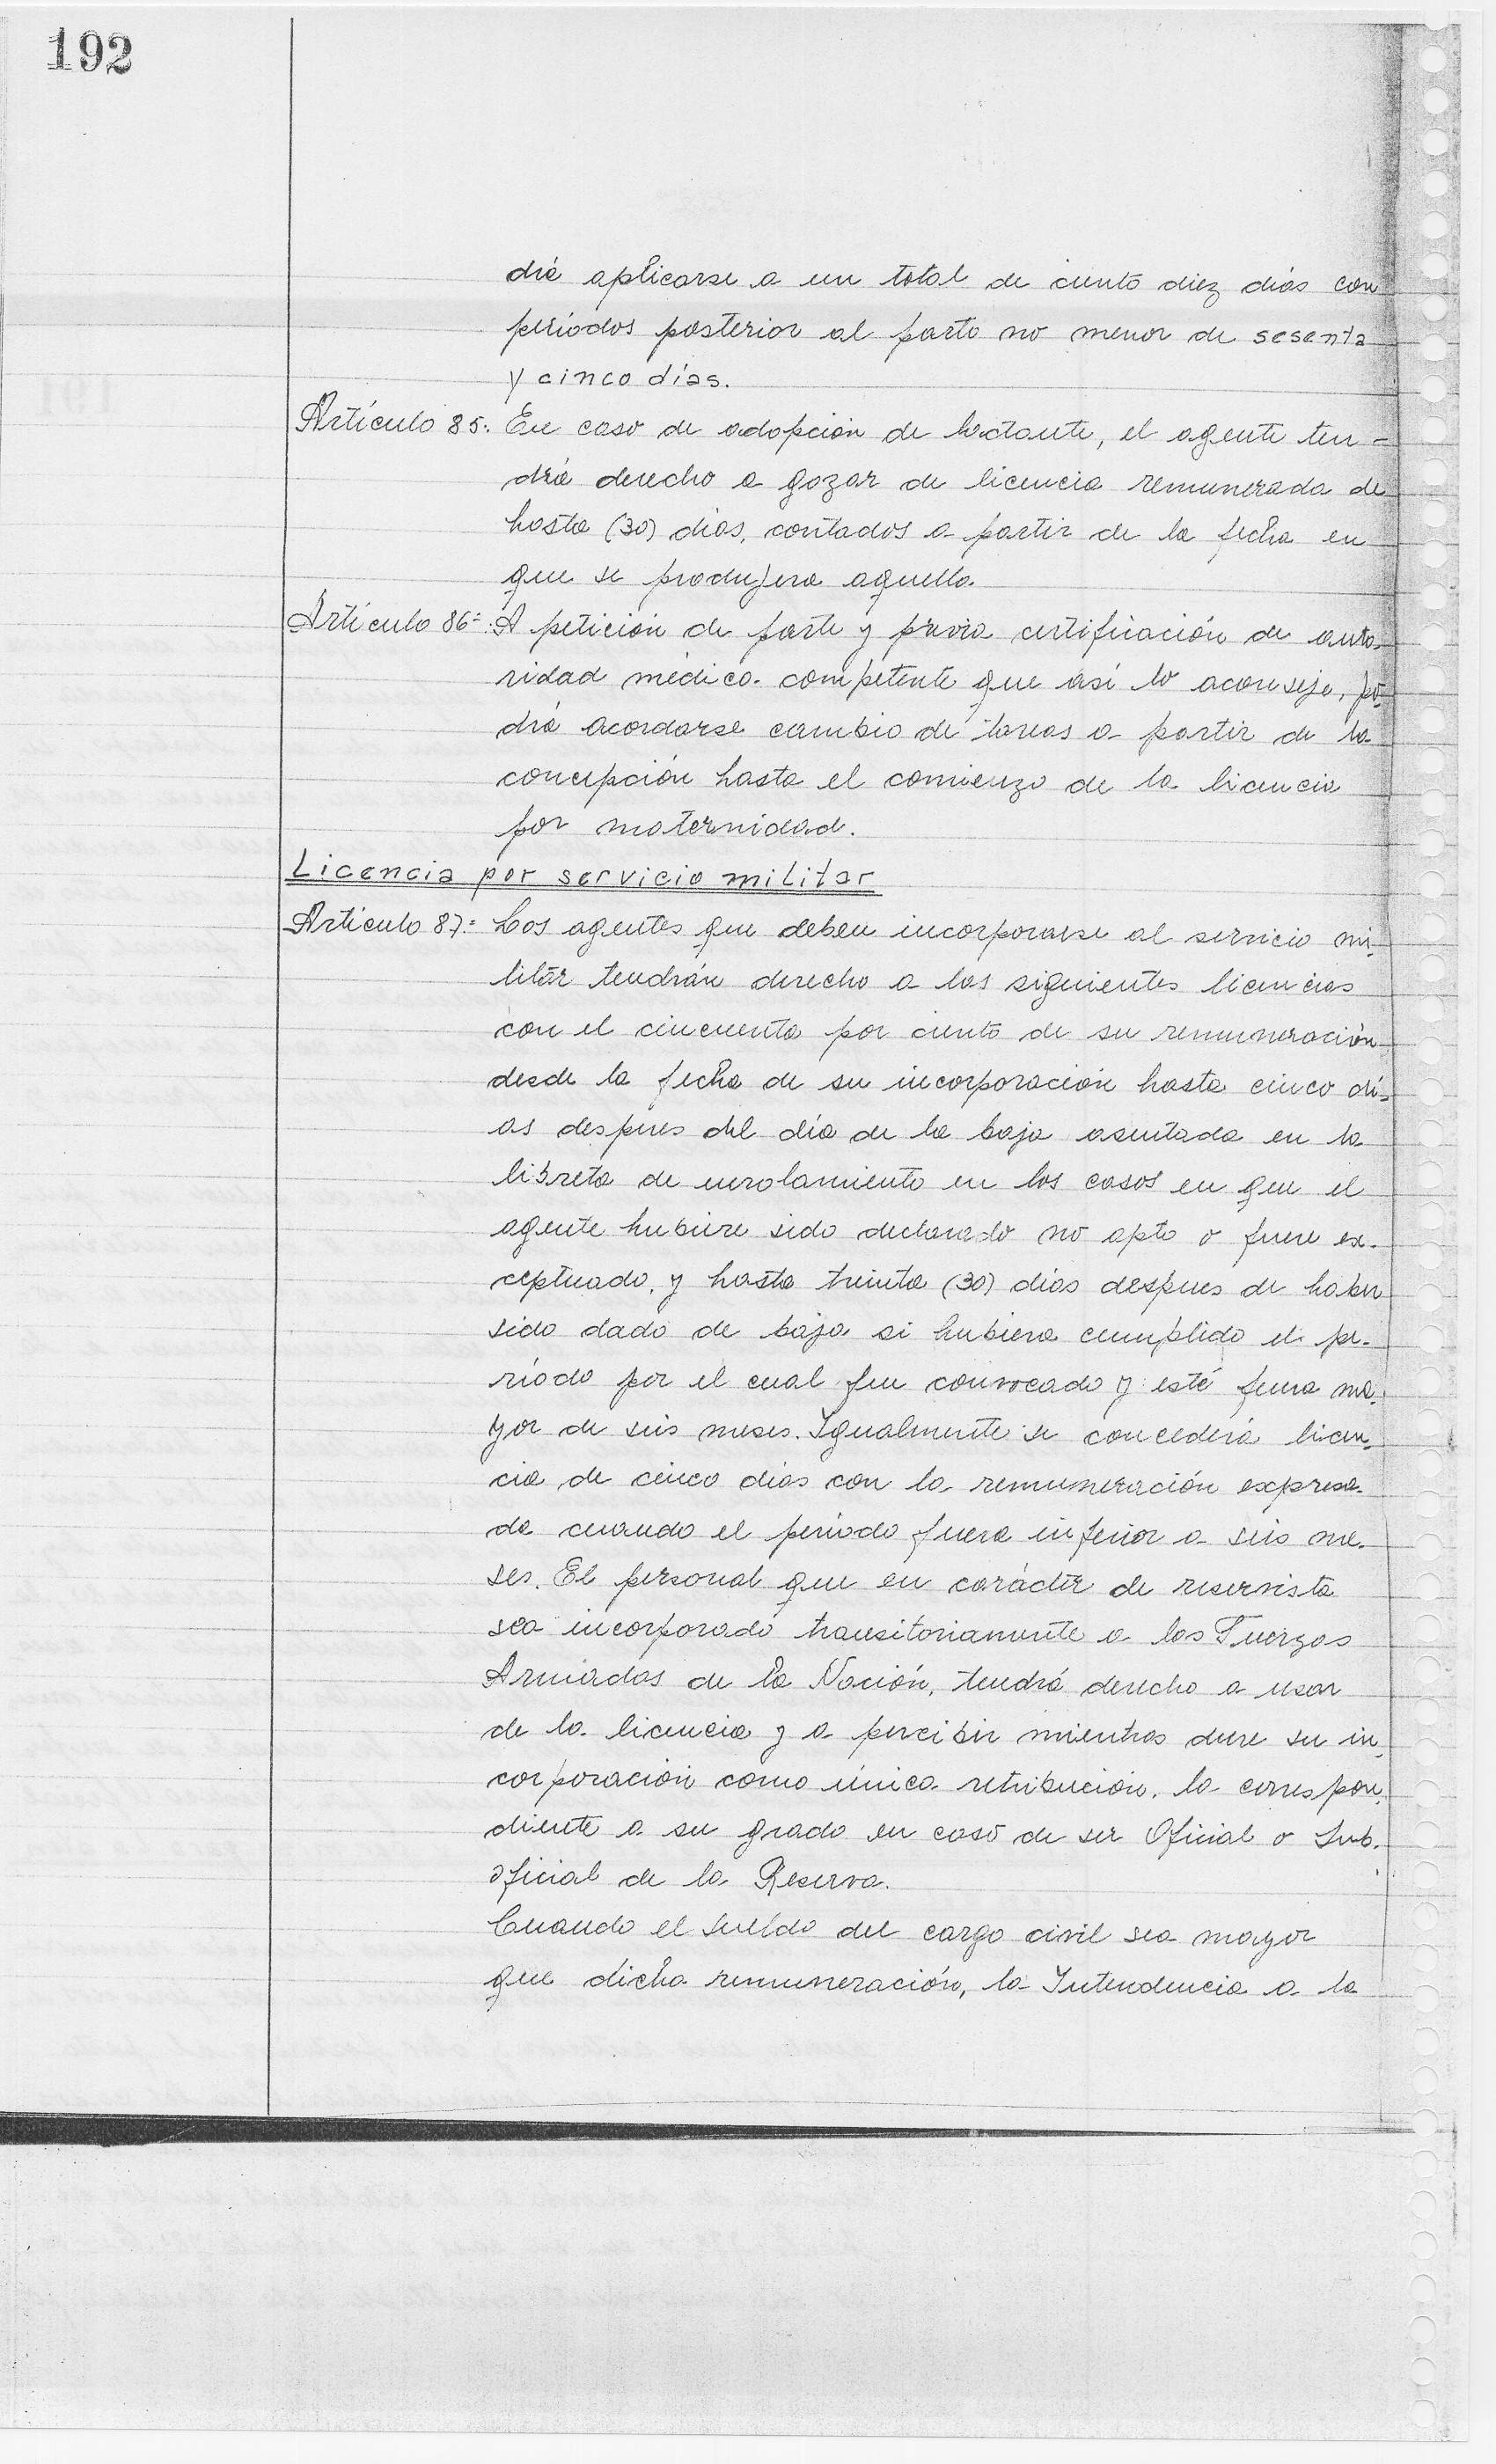 192
drá aplicarse a un total de ciento diez días con
períodos posterior al parto no menor de sesenta
y cinco días.
Artículo 85: En caso de adopción de lactante, el agente ten-
drá derecho a gozar de licencia remunerada de
hasta (30) días, contados a partir de la fecha en
que se produjera aquella.
Artículo 86=: A petición de parte y previa certificación de auto-
ridad médica competente que así lo aconseje, po-
drá acordarse cambio de tareas a partir de la
concepción hasta el comienzo de la licencia
por maternidad.
Licencia por servicio militar
Artículo 87:= Los agentes que deben incorporarse al servicio mi-
litar tendrán derecho a las siguientes licencias
con el cincuenta por ciento de su remuneración
desde la fecha de su incorporación hasta cinco dí-
as despues del día de la baja asentada en la
libreta de enrolamiento en los casos en que el
agente hubiere sido declarado no apto o fuere ex-
ceptuado, y hasta treinta (30) días despues de haber
sido dado de baja si hubiera cumplido el pe-
ríodo por el cual fue convocado y esté fuera ma-
yor de seis meses. Igualmente se concederá licen-
cia de cinco días con la remuneración expresa-
da cuando el período fuera inferior a seis me-
ses. El personal que en carácter de reservista
sea incorporado transitoriamente a las Fuerzas
Armadas de la Nación, tendrá derecho a usar
de la licencia y a percibir mientras dure su in-
corporación como única retribución, la correspon-
diente a su grado en caso de ser Oficial o Sub-
oficial de la Reserva.
Cuando el sueldo del cargo civil sea mayor
que dicha remuneración, la Intendencia a la